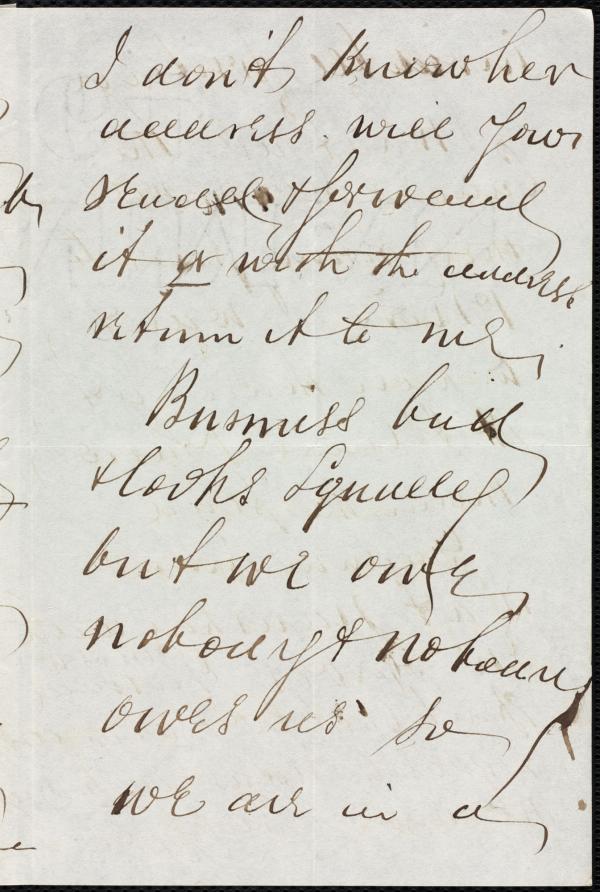 I don't know her
address. will you
read & forward
it or with the address
return it to me,
Business bad
& looks Squally
but we owe
nobody & nobody
owes us so
we are in a